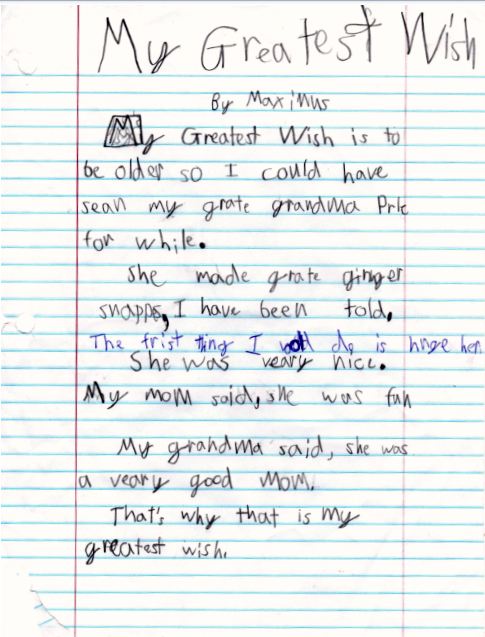 My Greatest Wish
By Maximus
My Greatest Wish is to
be older so I could have
sean my grate grandma Prk
for while.
she made grate ginger
snapps, I have been told,
The frist thing I woll do is huge her
She was veary nice.
My mom said, she was fun
My grandma said, she was
a veary good Mom.
That's why that is my
greatest wish.